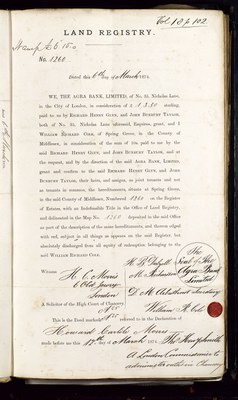 Vol. 10 p 102
LAND REGISTRY.
Stamp
No. 1260.
Dated this 6th day of March 187
WE, THE AGRA BANK, LIMITED, of No. 35, Nicholas Lane,
in the City of London, in consideration of £ sterling,
paid to us by RICHARD HENRY GLYN, and JOHN RUDSTON TAYLOR,
both of No. 35, Nicholas Lane aforesaid, Esquires, grant: and I
WILLIAM RICHARD COLE, of Spring Grove, in the County of
Middlesex, in consideration of the sum of 10s. paid to me by the
said RICHARD HENRY GLYN, and JOHN RUDSTON TAYLOR, and at
the request, and by the direction of the said AGRA BANK, LIMITED,
grant and confirm to the said RICHARD HENRY GLYN, and JOHN
RUDSTON TAYLOR, their heirs, and assigns, as joint tenants and not
as tenants in common, the hereditaments, situate at Spring Grove,
in the said County of Middlesex, Numbered 1260 on the Register
of Estates, with an Indefeasible Title in the Office of Land Registry,
and delineated in the Map No. 1260 deposited in the said Office
as part of the description of the same hereditaments, and thereon edged
with red, subject to all things as appears on the said Register, but
absolutely discharged from all equity of redemption belonging to the
said WILLIAM RICHARD COLE.
Witness
H. C. Morris
6 Old Jewry
London
A Solicitor of the High Court of Chancery
The
Seal of the
Agra Bank
Limited
Secretary
William R. Cole
This is the Deed marked A referred to in the Declaration of
Howard Carlile Morris
made before me this 17th day of March 187
Thos Henry Smith
A London Commissioner to
administer oaths in Chancery